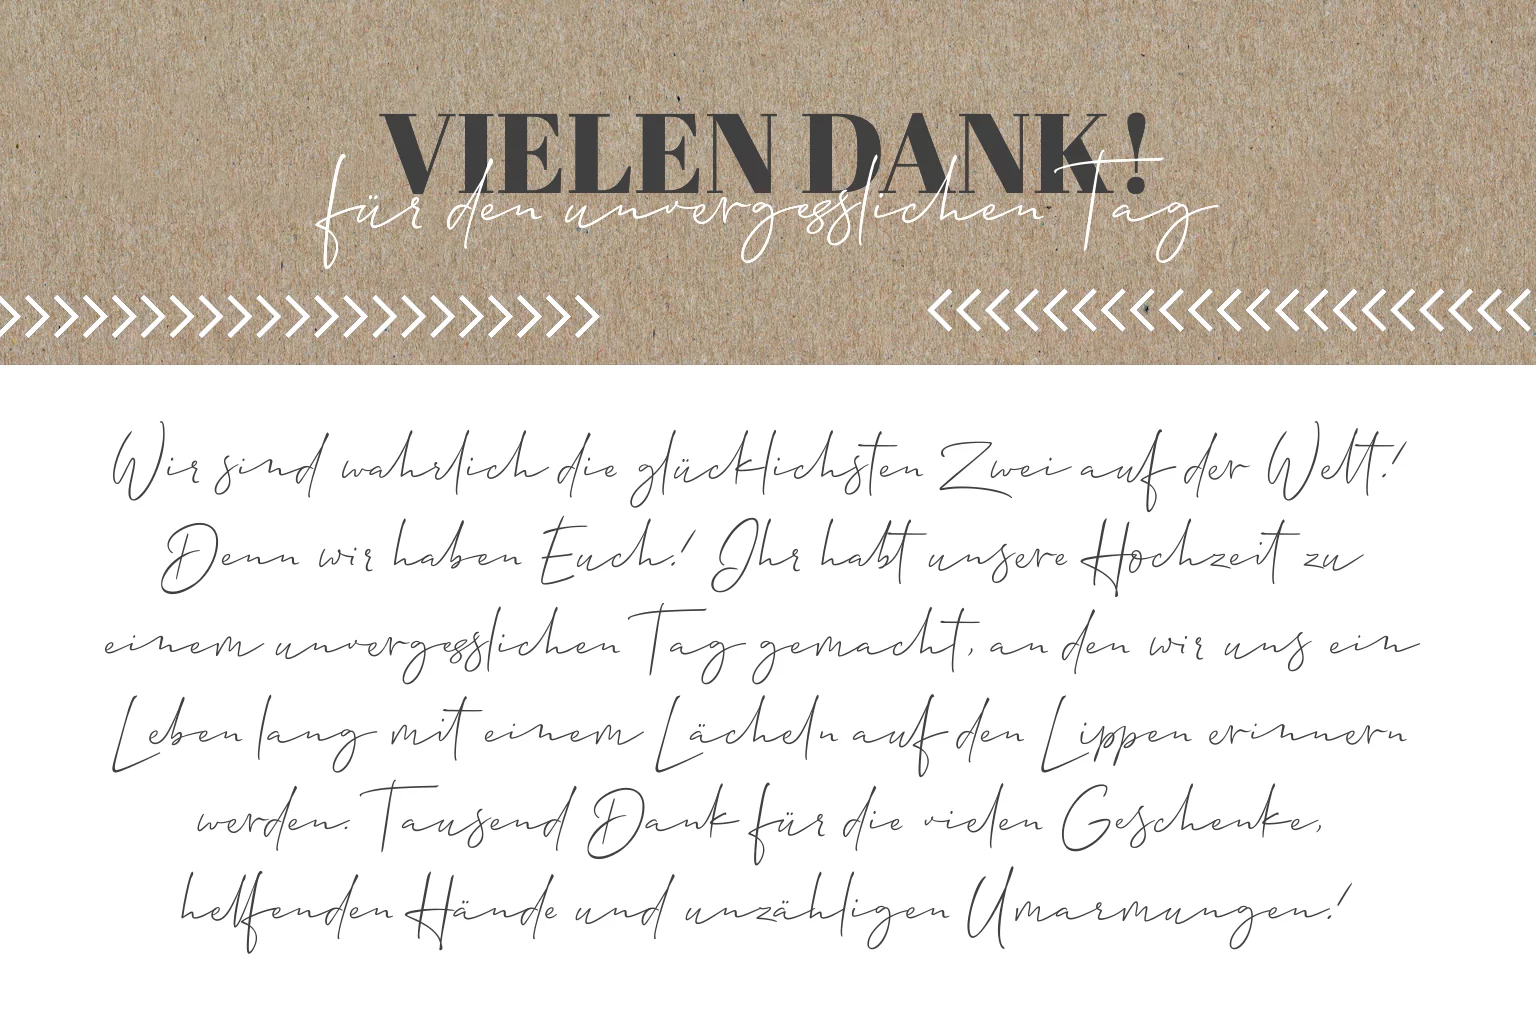 VIELEN DANK!
für den unvergesslichen Tag
Wir sind wahrlich die glücklichsten Zwei auf der Welt!
Denn wir haben Euch! Ihr habt unsere Hochzeit zu
einem unvergesslichen Tag gemacht, an den wir uns ein
Leben lang mit einem Lächeln auf den Lippen erinnern
werden. Tausend Dank für die vielen Geschenke,
helfenden Hände und unzähligen Umarmungen!